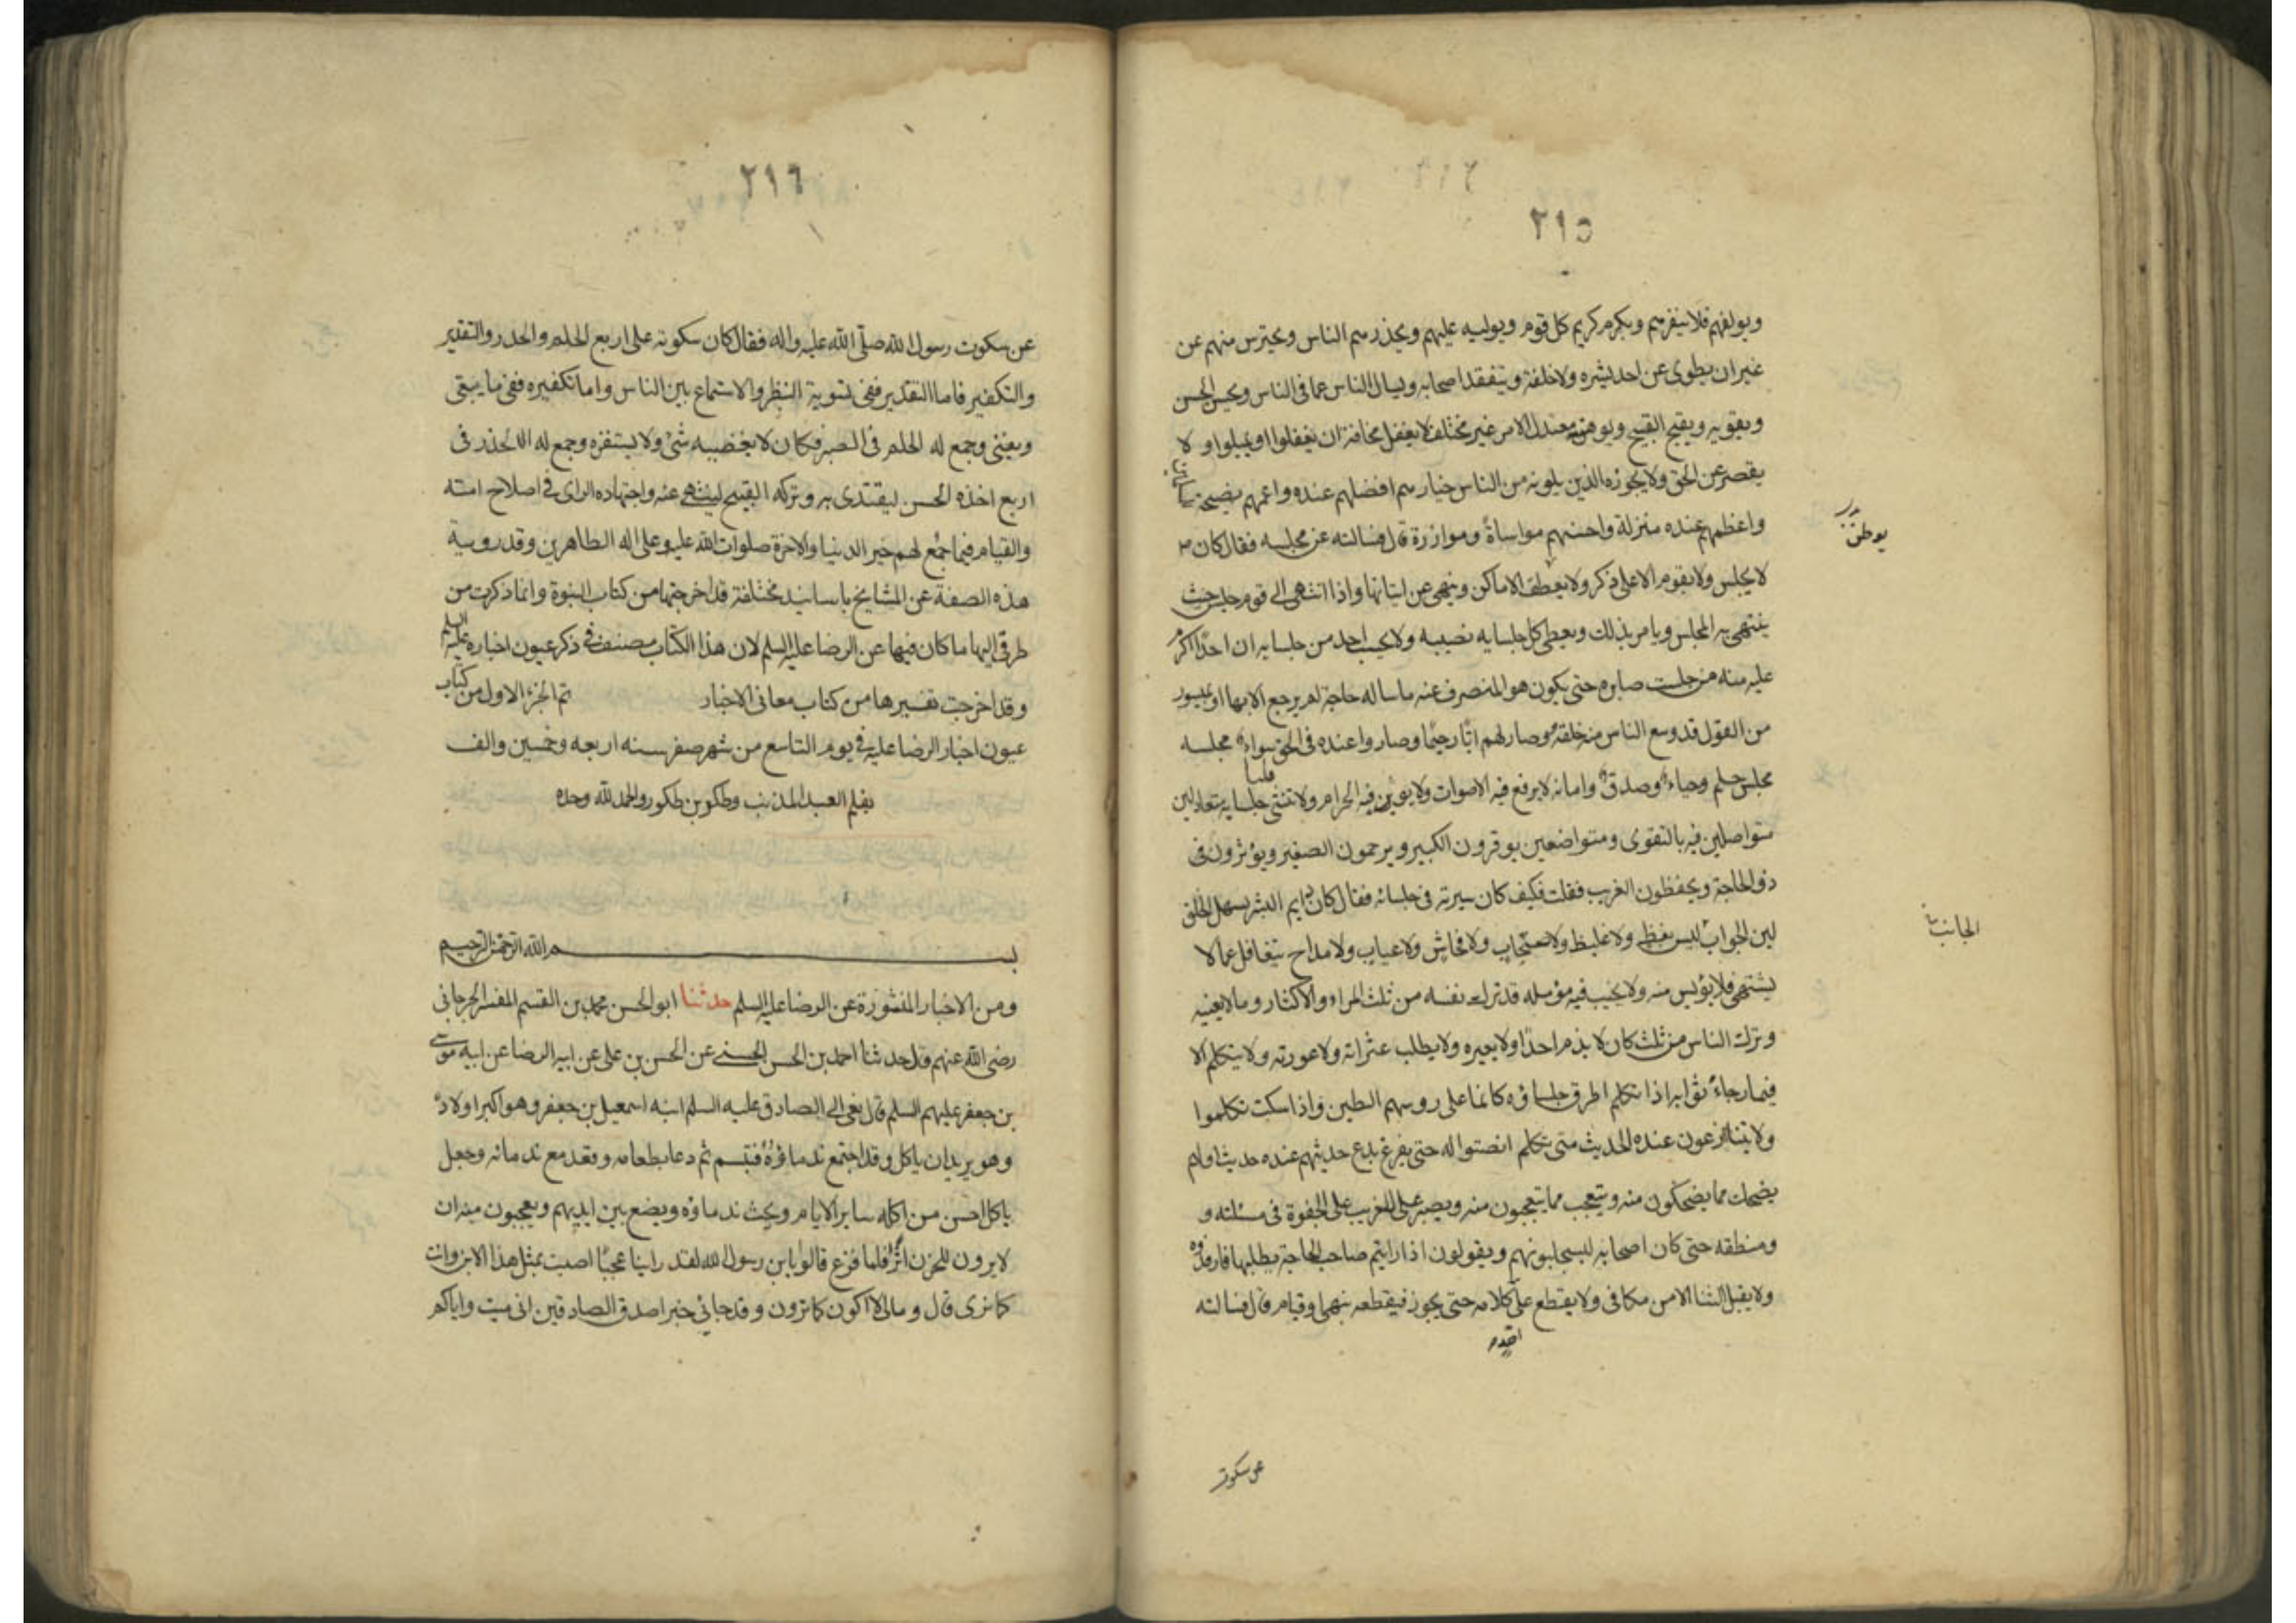 ٢١٥
ويولفهم فلا ينفرهم ويكرم كريم كل قوم ويوليه عليهم ويحذرهم الناس ويحترس منهم عن
غير ان يطوى عن احد بشره ولا خلقه ويتفقد اصحابه ويسال الناس عما فى الناس ويحسن الحسن
ويقويه ويقبح القبيح ويوهنه معتدل الامر غير مختلف لا يغفل مخافة ان يغفلوا او يميلوا و لا
يقصر عن الحق ولا يجوزه الذين يلونه من الناس خيارهم افضلهم عنده واعمهم نصيحة
واعظمهم عنده منزلة واحسنهم مواساة وموازرة قال فسالته عن مجلسه فقال كان
يوطن
لا يجلس ولا يقوم الا على ذكر ولا يعطف الاماكن وينهى عن ايتانها واذا انتهى الى قوم جلس حيث
ينتهى به المجلس ويامر بذلك ويعطى كل جلسايه نصيبه ولا يحسب احد من جلسايه ان احدًا اكرم
عليه منه من جلست صابره حتى يكون هو المنصرف عنه ما ساله حاجة لم يرجع الا بها او بميسور
من القول قد وسع الناس منه خلقه وصار لهم ابًا رحيمًا وصاروا عنده فى الحق سواء مجلسه
مجلس حلم وحياء وصدق وامانه لا يرفع فيه الاصوات ولا يوبن فيه الحرام ولا تنثى جلسايه متعادلين
متواصلين فيه بالتقوى ومتواضعين يوقرون الكبير ويرحمون الصغير ويؤثرون فى
ذو الحاجة ويحفظون الغريب فقلت فكيف كان سيرته فى جلسائه فقال كان دايم البشر سهل الخلق
لين الجواب ليس بفظ ولا غليظ ولا صخاب ولا فحاش ولا عياب ولا مداح يتغافل عما لا
الجانب
يشتهى فلا يؤيس منه ولا يخيب فيه مؤمله قد ترك نفسه من ثلث المراء والاكثار وما لا يعنيه
وترك الناس من ثلث كان لا يذم احدًا ولا يعيره ولا يطلب عثراته ولا عورته ولا يتكلم الا
فيما رجاء ثوابه اذا تكلم اطرق جلساؤه كانما على روسهم الطير واذا سكت تكلموا
ولا يتنازعون عنده الحديث متى يتكلم انصتوا له حتى يفرغ
يضحك مما يضحكون منه ويتعجب مما يتعجبون منه ويصبر على الغريب على الجفوة فى مسئلته و
ومنطقه حتى كان اصحابه ليسجلبونهم ويقولون اذا رايتم صاحب الحاجة يطلبها فارفدوه
ولا يقبل الثنا الا من مكافى ولا يقطع على كلامه حتى يجوز فيقطعه بنهى او قيام قال فسالته
عن سكوت
٢١٦
عن سكوت رسول الله صلى الله عليه واله فقال كان سكوته على اربع الحلم والحذر والتقدير
والتكفير فاما التقدير ففى تسوية النظر والاستماع بين الناس واما تكفيره ففى ما يبقى
ويفنى وجمع له الحلم فى الصبر فكان لا يغضبه شئ ولا يستفزه وجمع له الحذر فى
اربع اخذه الحسن ليقتدى به وتركه القبيح لينتهى عنه واجتهاده الراى فى اصلاح امته
والقيام فيما جمع لهم خير الدنيا والاخرة صلوات الله عليه وعلى اله الطاهرين وقد رويت
هذه الصفة عن المشايخ باسانيد مختلفة قد اخرجتها من كتاب النبوة وانما ذكرت من
طرقى اليها ما كان فيها عن الرضا عليه السلم لان هذا الكتاب مصنف فى ذكر عيون اخباره عليه السلم
وقد اخرجت تفسيرها من كتاب معانى الاخبار تم الجزء الاول من كتاب
عيون اخبار الرضا عليه فى يوم التاسع من شهر صفر سنه اربعه وخمسين والف
بقلم العبد المذنب وطكو بن طكور والحمد لله وحده
بسم الله الرحمن الرحيم
ومن الاخبار المنثورة عن الرضا عليه السلم حدثنا ابو الحسن محمد بن القسم المفسر الجرجانى
رضى الله عنهم قال حدثنا احمد بن الحسن الحسنى عن الحسن بن على عن ابيه الرضا عن ابيه موسى
بن جعفر عليهم السلم قال نعى الى الصادق عليه السلم ابنه اسمعيل بن جعفر وهو اكبر اولاده
وهو يريد ان ياكل وقد اجتمع ندماؤه فتبسم ثم دعا بطعامه وقعد مع ندمائه وجعل
ياكل احسن من اكله ساير الايام ويحث ندماؤه ويضع بين ايديهم ويعجبون منه ان
لا يرون للحزن اثرًا فلما فزع قالوا يابن رسول الله لقد راينا عجبًا اصبت بمثل هذا الابن وانت
كما نرى قال ومالى لا اكون كما ترون وقد جائى خبر اصدق الصادقين انى ميت واياكم